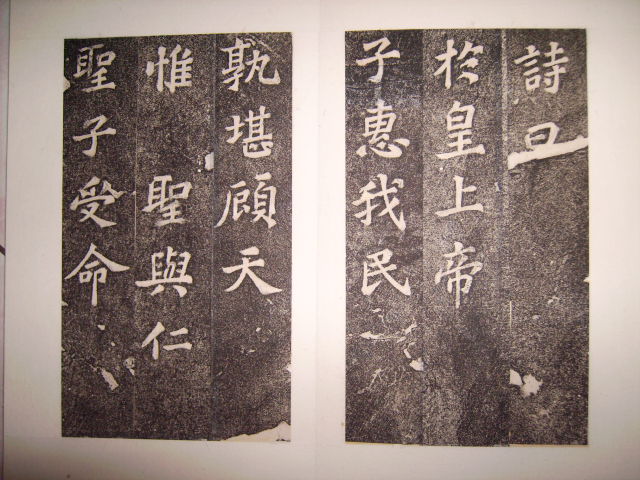 詩曰
於皇上帝
子惠我民
孰堪顧天
惟 聖與仁
聖子受命